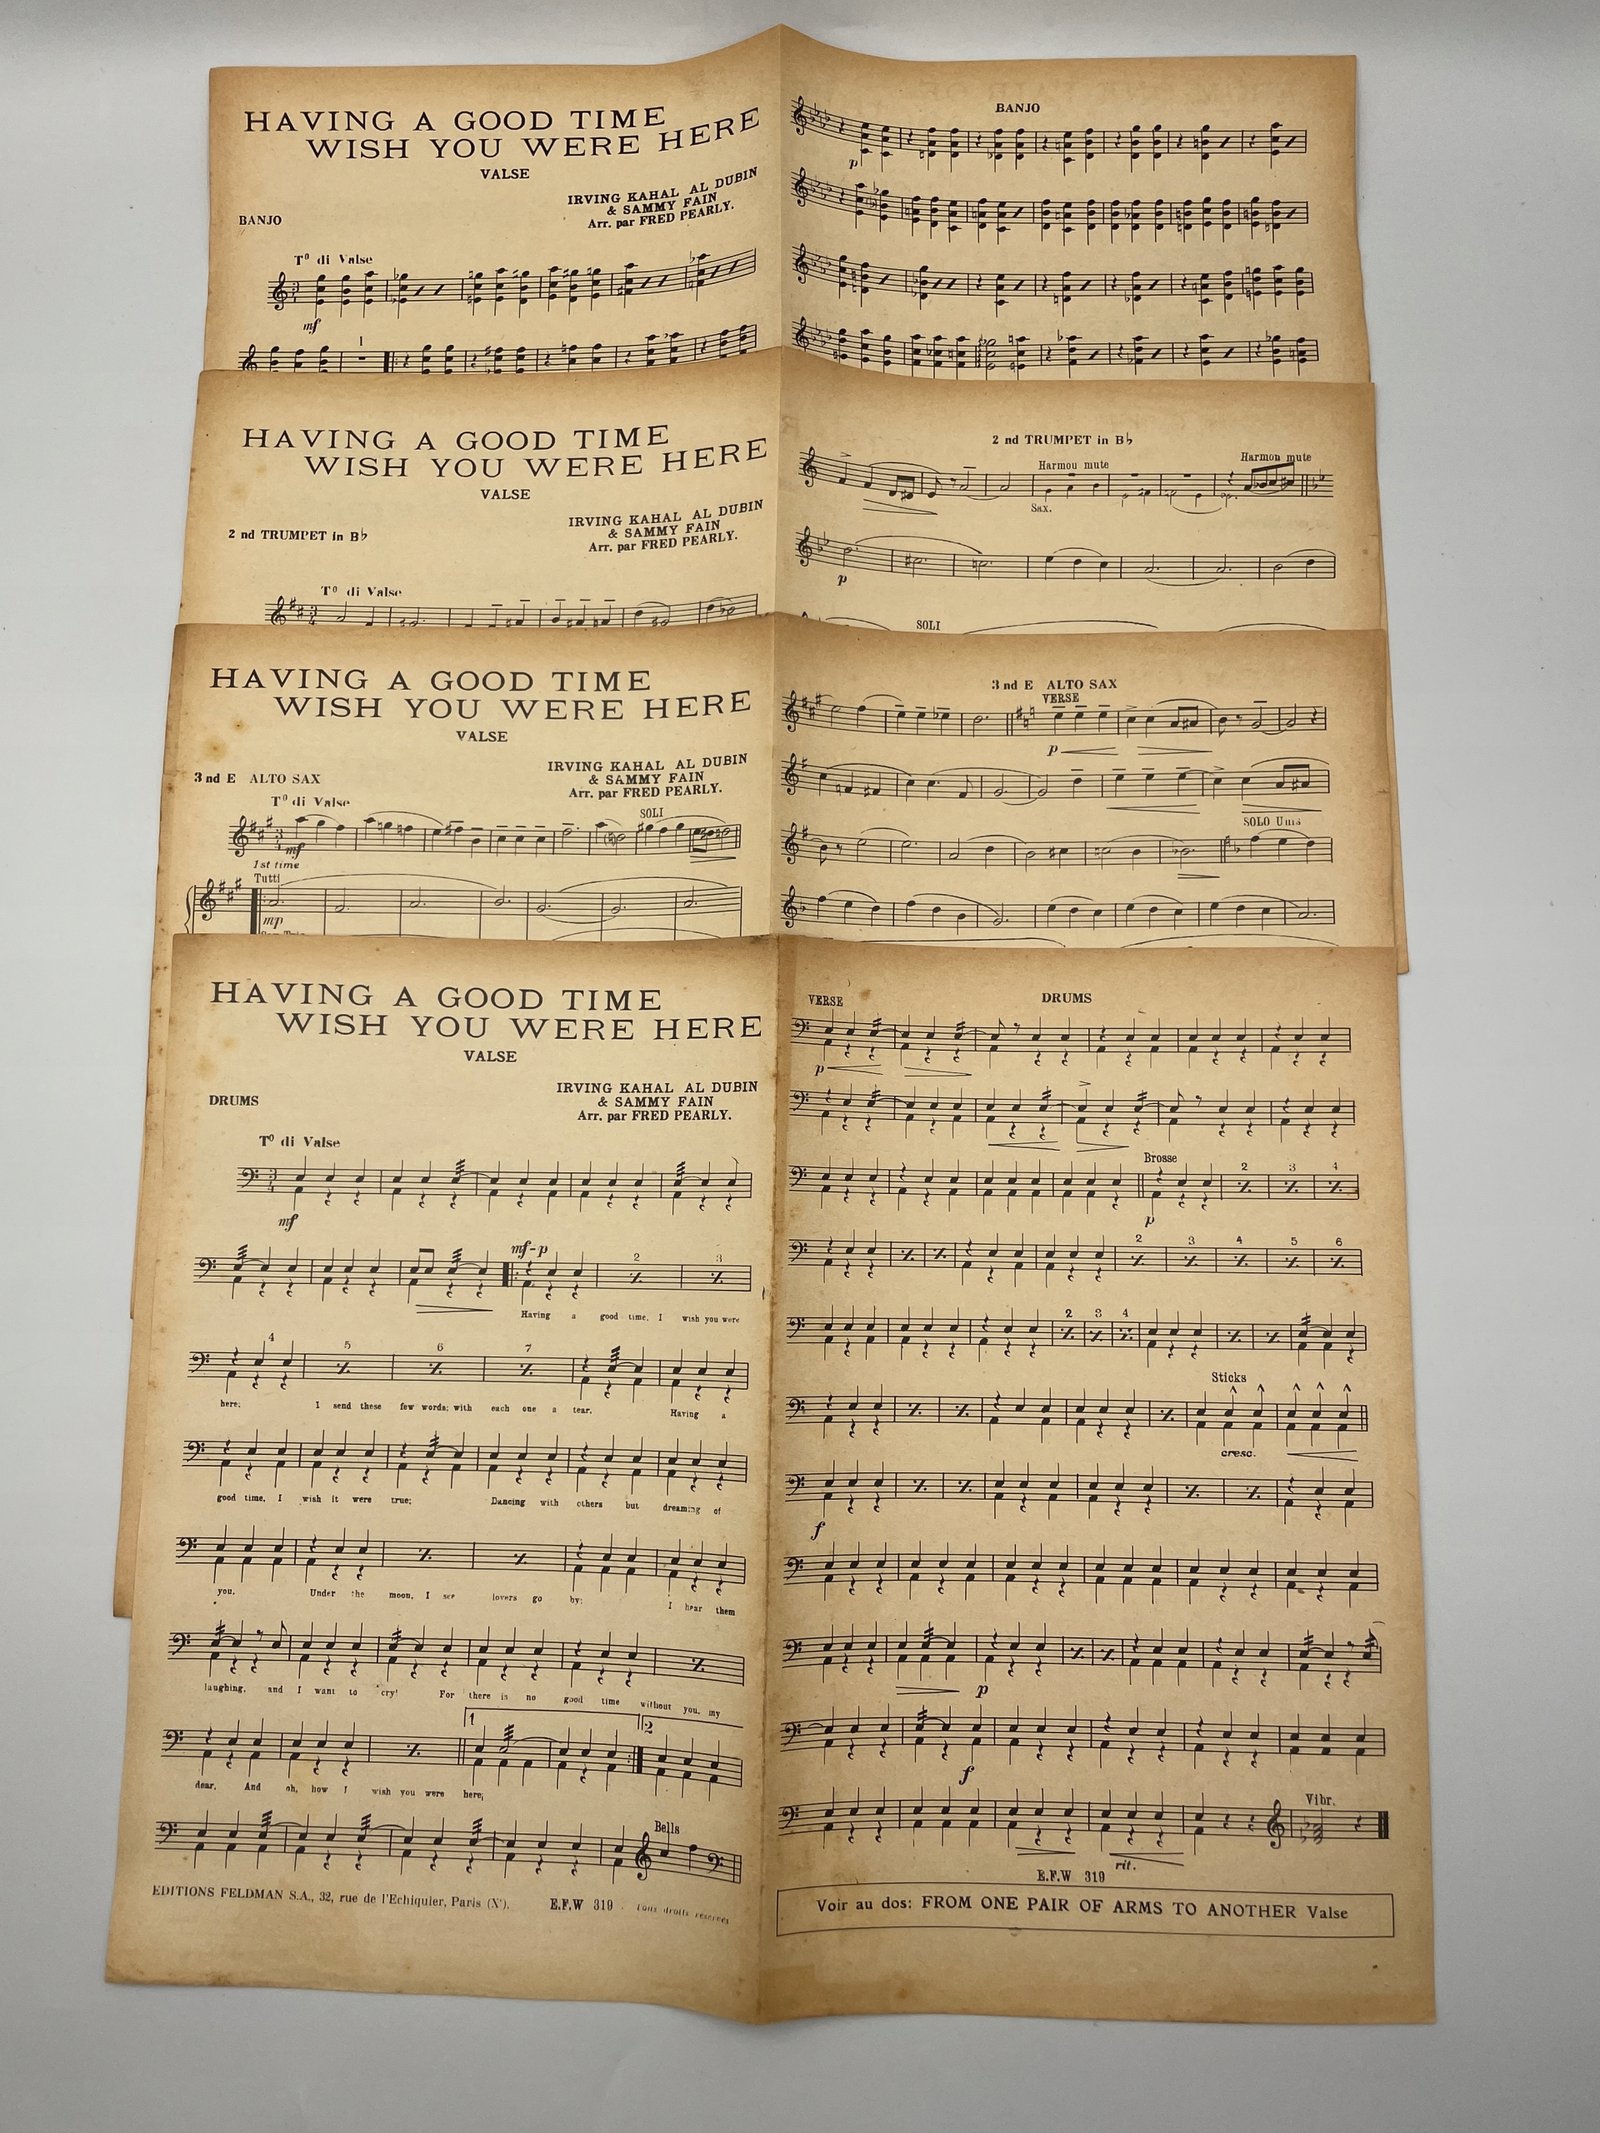 HAVING A GOOD TIME
WISH YOU WERE HERE
VALSE
IRVING KAHAL AL DUBIN
& SAMMY FAIN
Arr. par FRED PEARLY.
BANJO
Tº di Valse
mf
1
BANJO
p
HAVING A GOOD TIME
WISH YOU WERE HERE
VALSE
IRVING KAHAL AL DUBIN
& SAMMY FAIN
Arr. par FRED PEARLY.
2 nd TRUMPET in B♭
Tº di Valse
2 nd TRUMPET in B♭
Harmon mute
Harmon mute
Sax.
p
SOLI
HAVING A GOOD TIME
WISH YOU WERE HERE
VALSE
IRVING KAHAL AL DUBIN
& SAMMY FAIN
Arr. par FRED PEARLY.
3 nd E ALTO SAX
Tº di Valse
SOLI
mf
1st time
Tutti
mp
3 nd E ALTO SAX
VERSE
p
SOLO Unis
HAVING A GOOD TIME
WISH YOU WERE HERE
VALSE
IRVING KAHAL AL DUBIN
& SAMMY FAIN
Arr. par FRED PEARLY.
DRUMS
Tº di Valse
mf
mf-p
2 3
Having a good time, I wish you were
4 5 6 7
here; I send these few words; with each one a tear. Having a
good time, I wish it were true; Dancing with others but dreaming of
you. Under the moon, I see lovers go by; I hear them
laughing, and I want to cry! For there is no good time without you, my
1 2
dear. And oh, how I wish you were here;
Bells
EDITIONS FELDMAN S.A., 32, rue de l'Echiquier, Paris (Xe). E.F.W 319 Tous droits réservés
DRUMS
VERSE
p
Brosse
2 3 4
p
2 3 4 5 6
2 3 4
Sticks
cresc.
f
p
f
Vibr.
rit.
E.F.W 319
Voir au dos: FROM ONE PAIR OF ARMS TO ANOTHER Valse